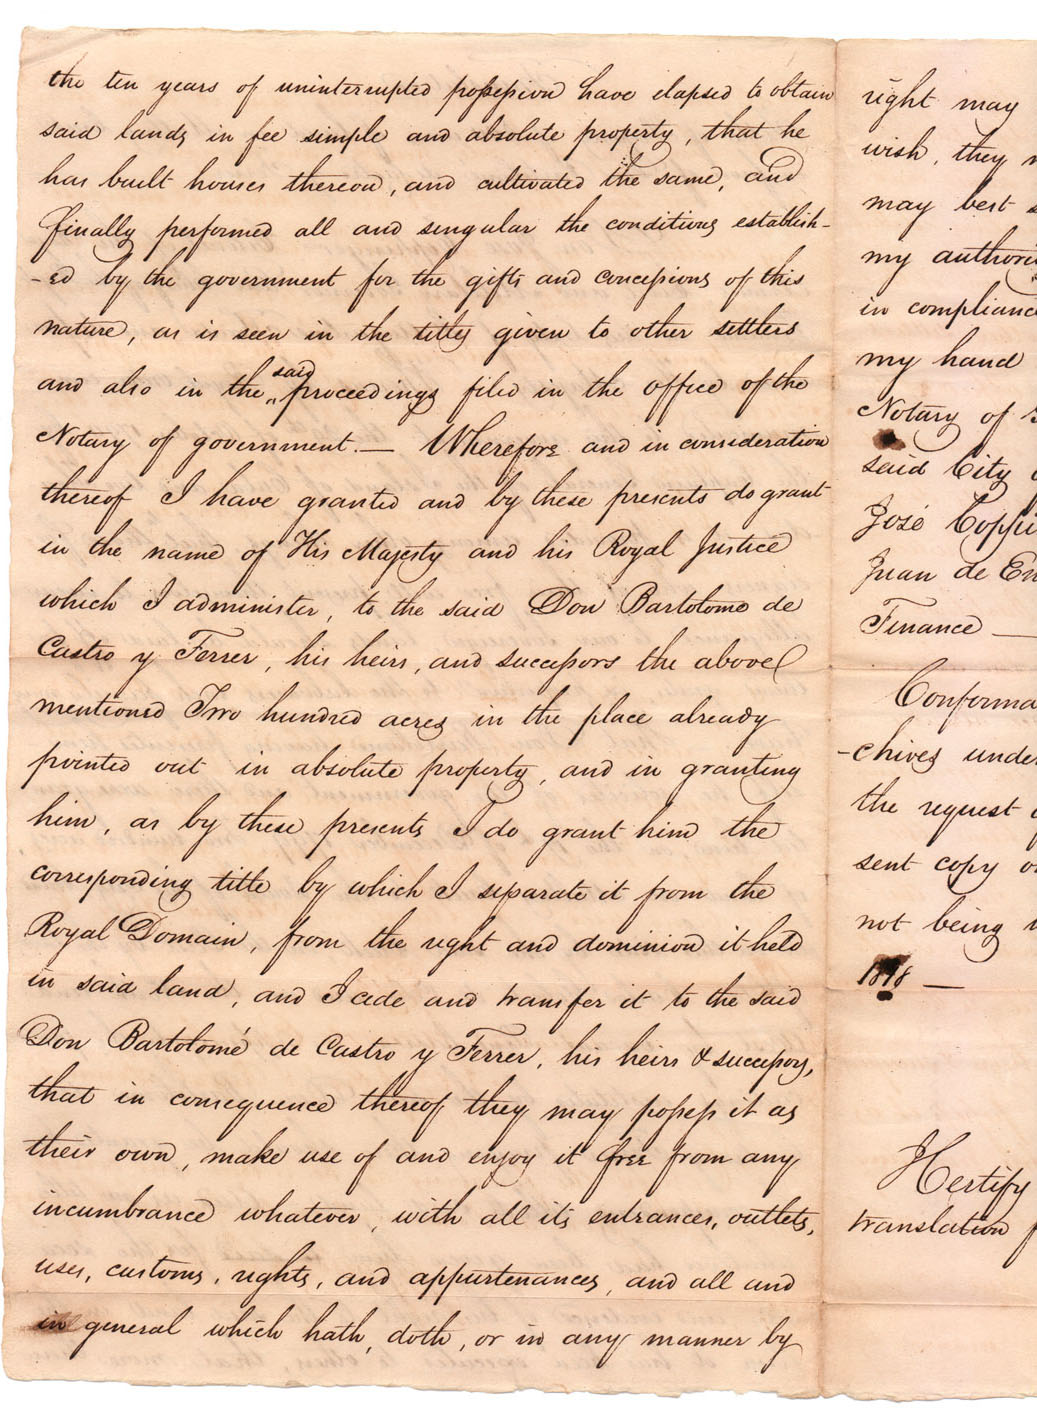 the ten years of uninterrupted possession have elapsed to obtain
said lands in fee simple and absolute property, that he
has built houses thereon, and cultivated the same, and
finally performed all and singular the conditions establish-
-ed by the government for the gifts and concessions of this
nature, as is seen in the titles given to other settlers
and also in the said proceedings filed in the office of the
Notary of government. — Wherefore and in consideration
thereof I have granted and by these presents do grant
in the name of His Majesty and his Royal Justice
which I administer, to the said Don Bartolome de
Castro y Ferrer, his heirs, and successors the above
mentioned Two hundred acres in the place already
pointed out in absolute property, and in granting
him, as by these presents I do grant him the
corresponding title by which I separate it from the
Royal Domain, from the right and dominion it held
in said land, and I cede and transfer it to the said
Don Bartolomé de Castro y Ferrer, his heirs & successors,
that in consequence thereof they may possess it as
their own, make use of and enjoy it free from any
incumbrance whatever, with all its entrances, outlets,
uses, customs, rights, and appurtenances, and all and
in general which hath, doth, or in any manner by
right may
wish, they
may best
my
in
my hand
Notary of
said City
José
Juan de
Finance —
-chives
the request
sent copy
not being
1818 —
I Certify
translation